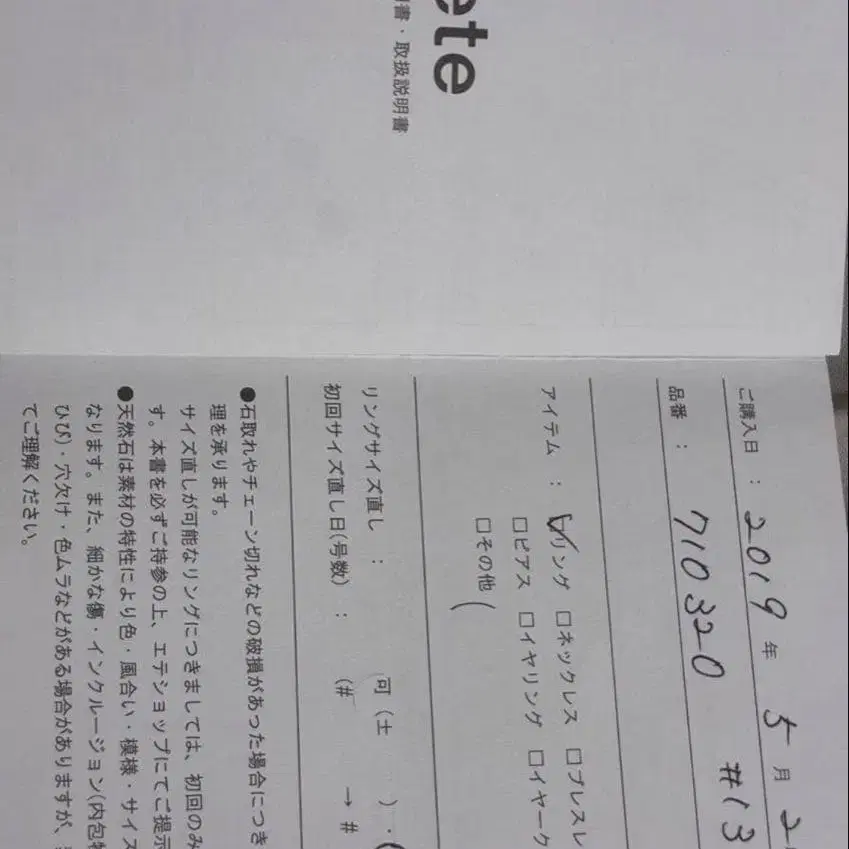 ete
書・取扱説明書
ご購入日 : 2019 年 5 月 2
品番 : 710320 #13
アイテム : ☑リング □ネックレス □ブレスレ
□ピアス □イヤリング □イヤーク
□その他 (
リングサイズ直し : 可 (± ) ・ (
初回サイズ直し日(号数) : (# → #
●石取れやチェーン切れなどの破損があった場合につき
理を承ります。
サイズ直しが可能なリングにつきましては、初回のみ
す。本書を必ずご持参の上、エテショップにてご提示
●天然石は素材の特性により色・風合い・模様・サイズ
なります。また、細かな傷・インクルージョン(内包物
ひび)・穴欠け・色ムラなどがある場合がありますが、
てご理解ください。